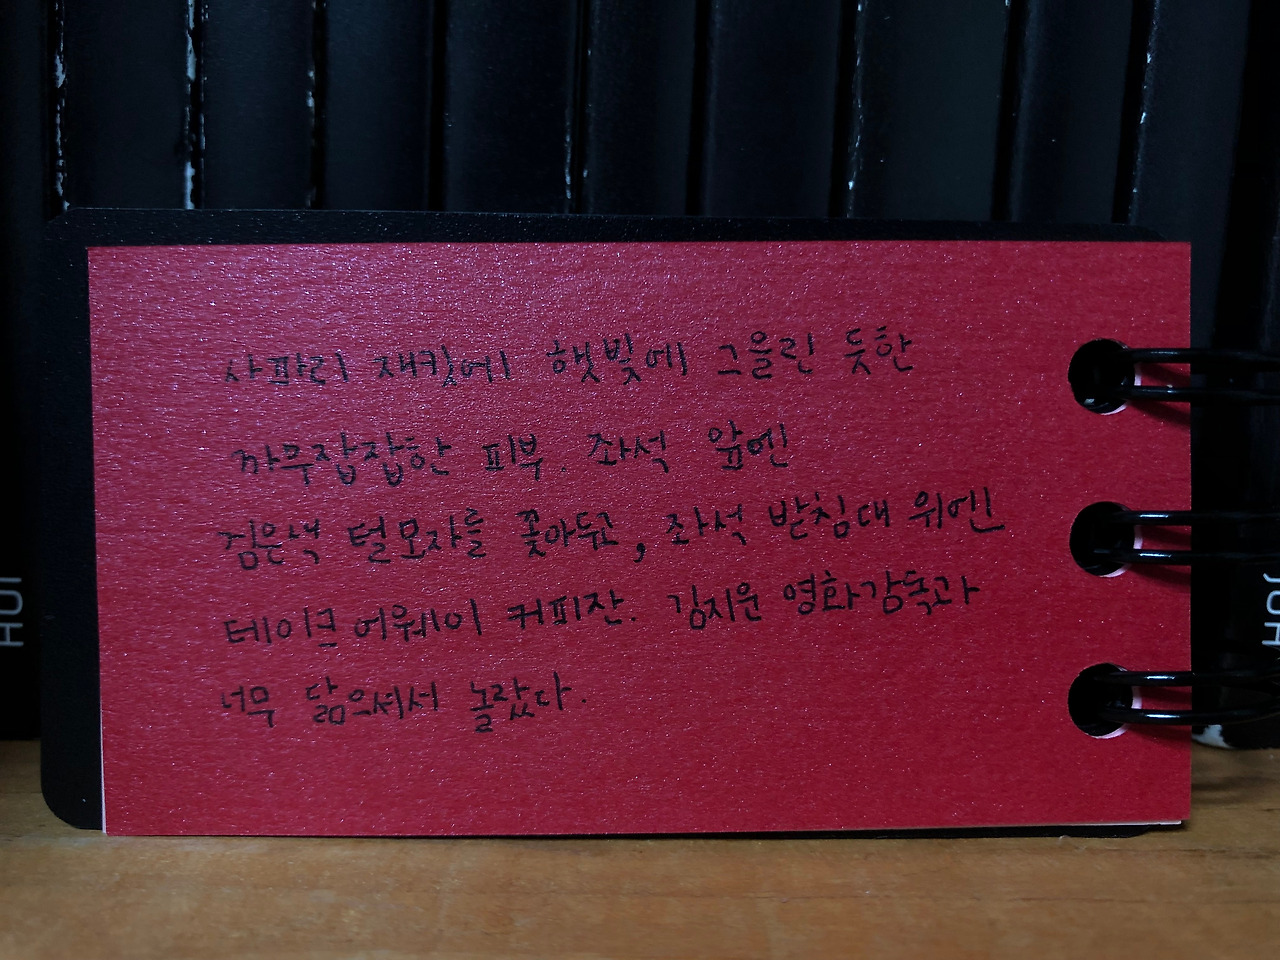 사파리 재킷에 햇빛에 그을린 듯한
까무잡잡한 피부. 좌석 앞엔
검은색 털모자를 꽂아두고, 좌석 받침대 위엔
테이크 어웨이 커피잔. 김지운 영화감독과
너무 닮으셔서 놀랐다.